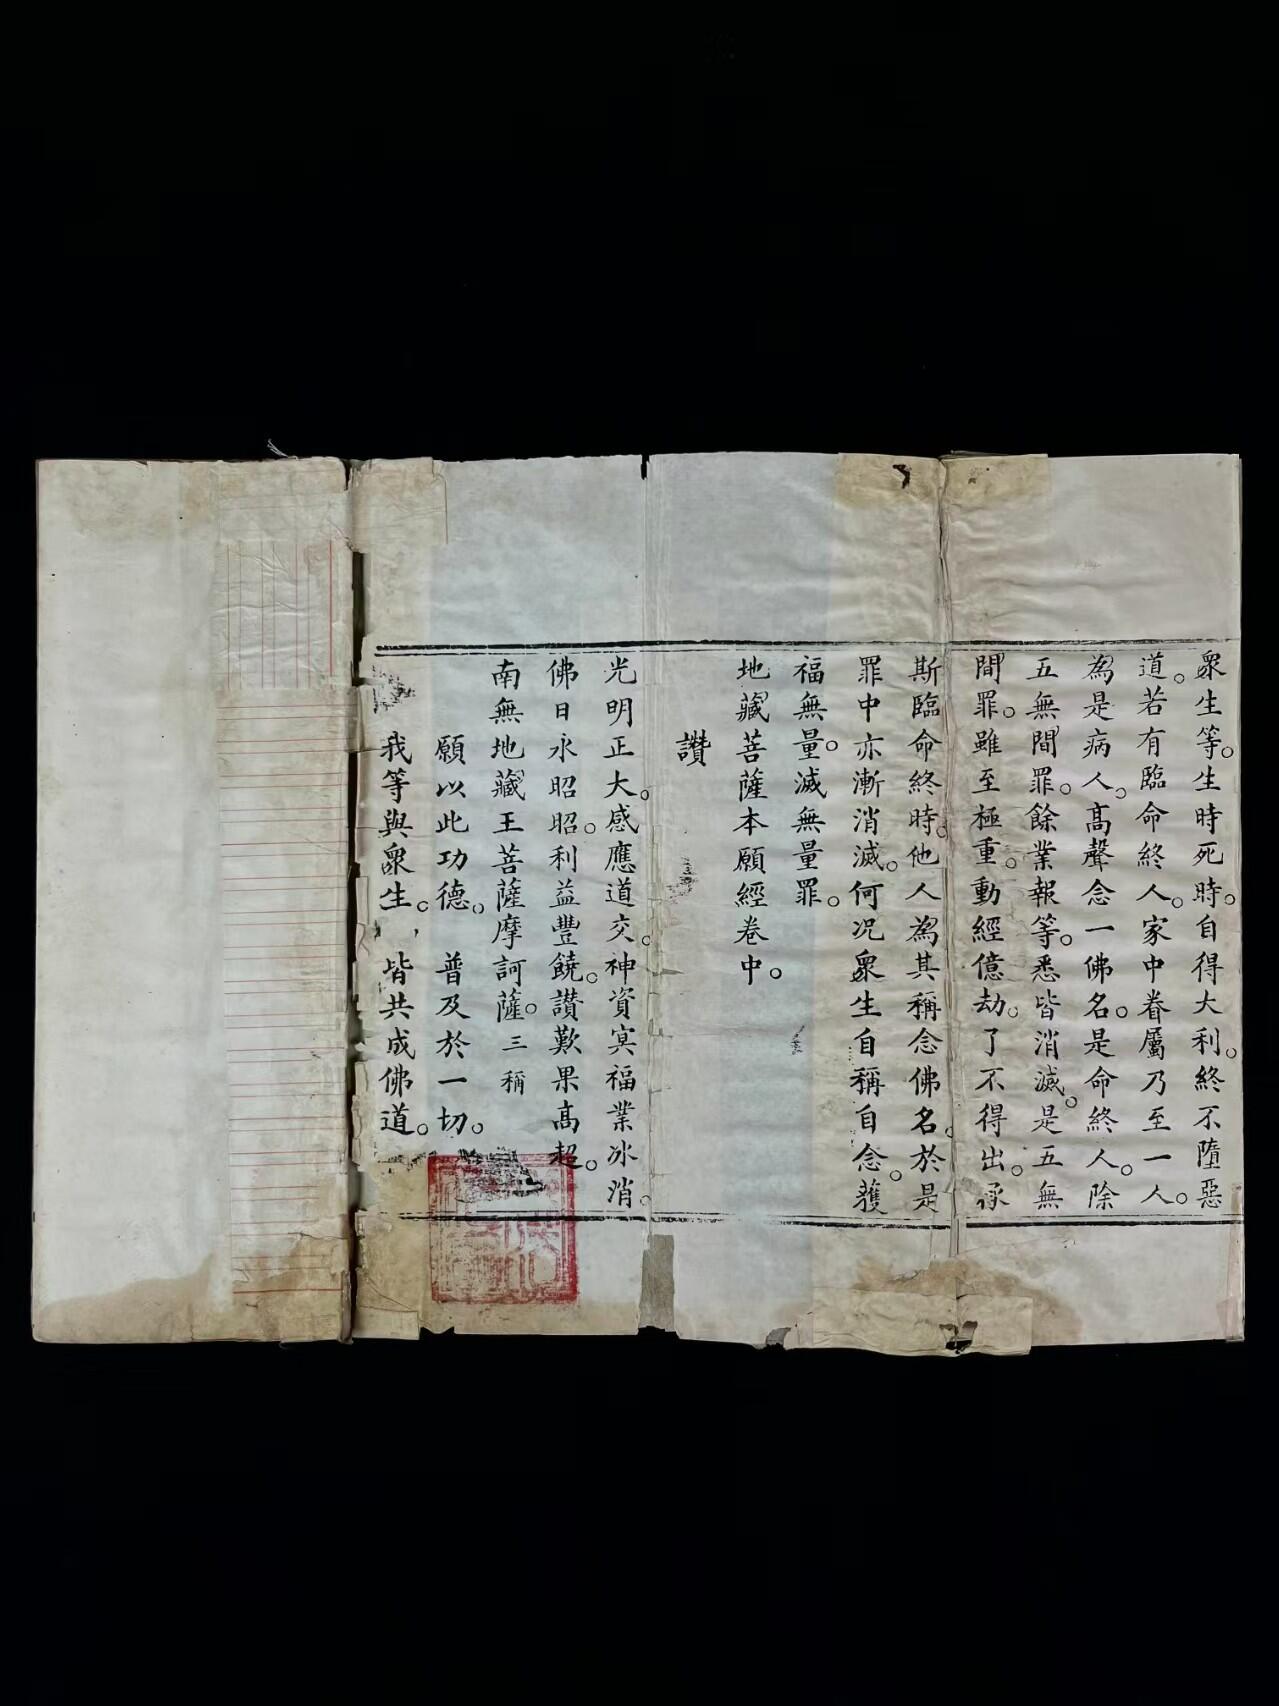 衆生等。生時死時。自得大利。終不墮惡
道。若有臨命終人。家中眷屬乃至一人。
爲是病人。高聲念一佛名。是命終人。除
五無間罪。餘業報等。悉皆消滅。是五無
間罪。雖至極重。動經億劫。了不得出。承
斯臨命終時。他人爲其稱念佛名。於是
罪中亦漸消滅。何况衆生自稱自念。獲
福無量。滅無量罪。
地藏菩薩本願經卷中。
讚
光明正大。感應道交。神資冥福業冰消。
佛日永昭昭。利益豐饒。讚歎果高超。
南無地藏王菩薩摩訶薩。三稱
願以此功德。 普及於一切。
我等與衆生。 皆共成佛道。